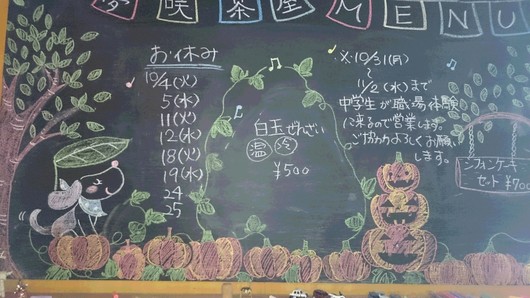 夢喫茶屋MENU
お休み
10/4(火)
5(水)
11(火)
12(水)
18(火)
19(水)
24
25
白玉ぜんざい
温 冷
¥500
※10/31(月)
〜
11/2(水)まで
中学生が職場体験
に来るので営業します。
ご協力よろしくお願い
します。
シフォンケーキ
セット ¥700